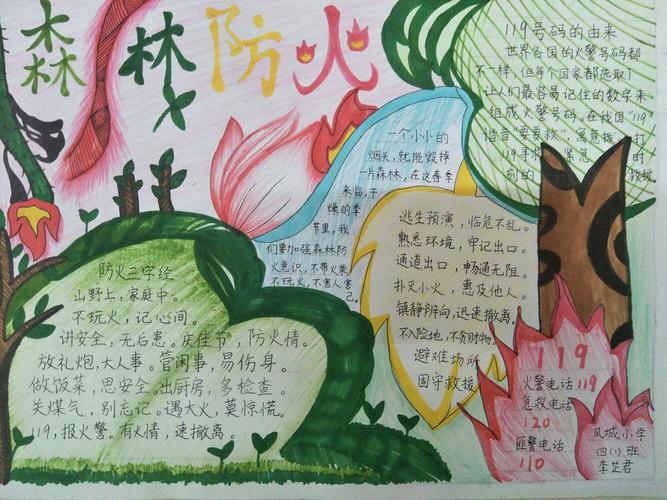 森林防火
119号码的由来
世界各国的火警号码都
不一样,但每个国家都选取了
让人们最容易记住的数字来
组成火警号码。在我国"119"
谐音"要要救",寓意拨打
119寻求紧急时
刻的救援
一个小小的
烟头,就能毁掉
一片森林,在这春季
来临,干
燥的季
节里,我
们要加强森林防
火意识,不带火柴,
不玩火,不害人害
己。
逃生预演,临危不乱。
熟悉环境,牢记出口。
通道出口,畅通无阻。
扑灭小火,惠及他人。
镇静辨向,迅速撤离。
不入险地,不贪财物。
避难场所
固守救援
防火三字经
山野上,家庭中。
不玩火,记心间。
讲安全,无后患。庆佳节,防火情。
放礼炮,大人事。管闲事,易伤身。
做饭菜,思安全。出厨房,多检查。
关煤气,别忘记。遇大火,莫惊慌。
119,报火警。有火情,速撤离。
119
火警电话119
急救电话
120
匪警电话
110
凤城小学
四(1)班
李芷君